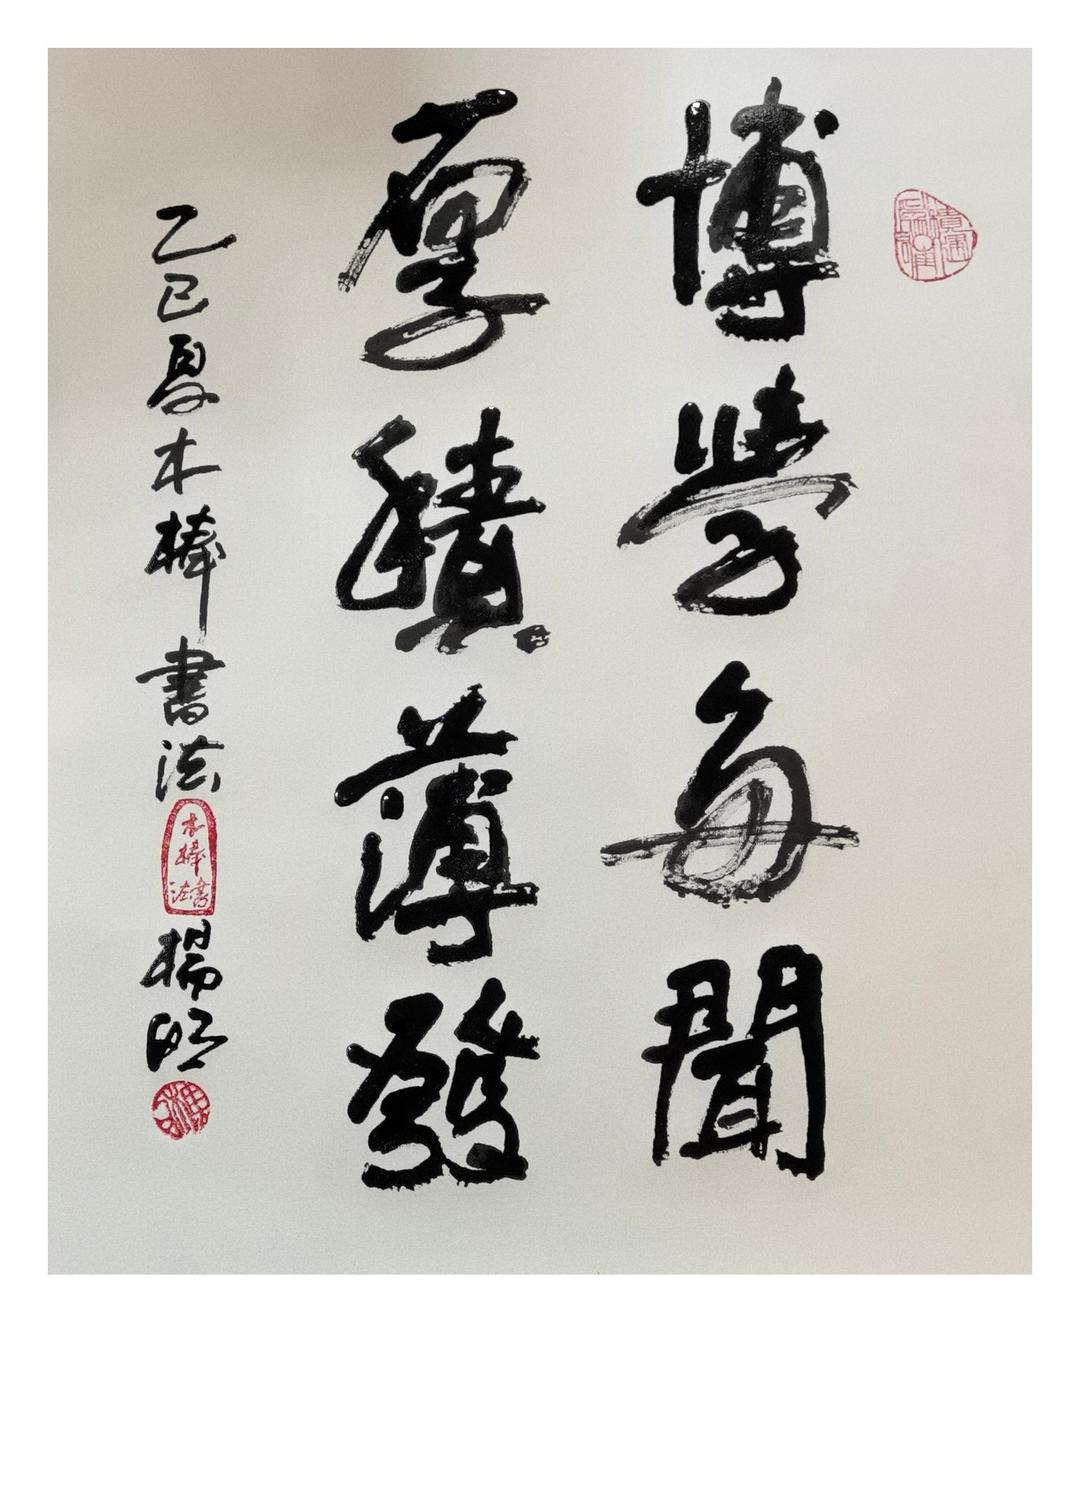 博學多聞
厚積薄發
乙巳夏木棒書法
木棒書法
楊明